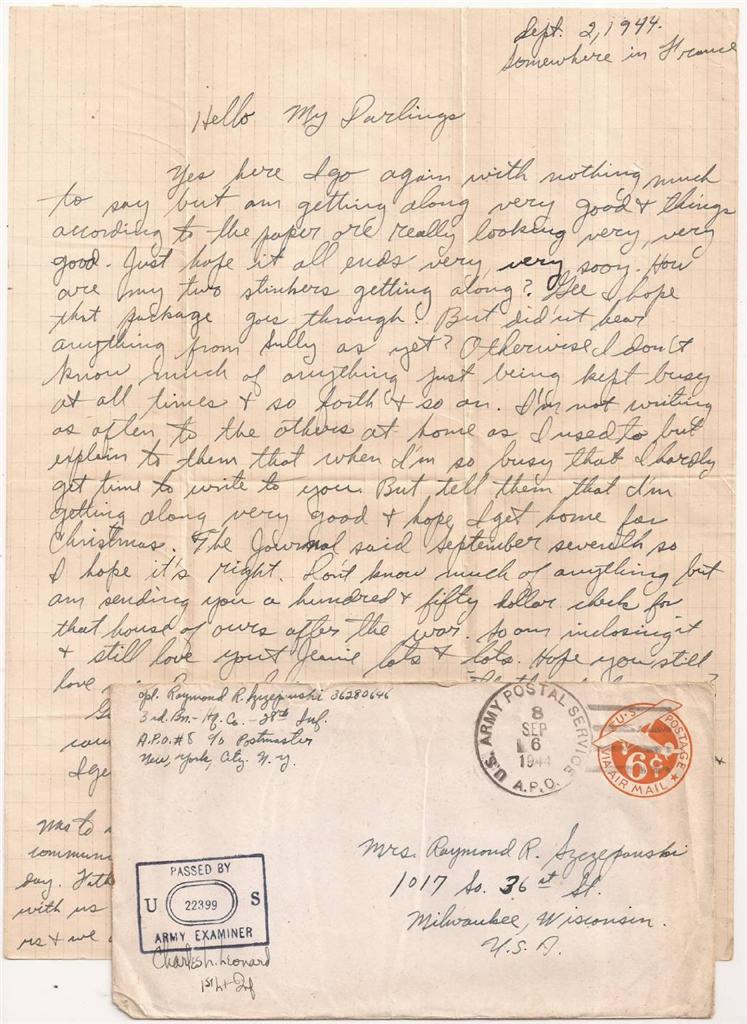 Sept. 2, 1944.
Somewhere in France
Hello My Darlings
Yes here I go again with nothing much
to say but am getting along very good & things
according to the paper are really looking very, very
good. Just hope it all ends very, very soon. How
are my two stinkers getting along? Gee I hope
that package goes through. But did'nt hear
anything from Sully as yet? Otherwise I don't
know much of anything just being kept busy
at all times & so forth & so on. I'm not writing
as often to the others at home as I used to but
explain to them that when I'm so busy that I hardly
get time to write to you. But tell them that I'm
getting along very good & hope I get home for
Christmas. The Journal said September seventh so
I hope it's right. Don't know much of anything but
am sending you a hundred & fifty dollar check for
that house of ours after the war. So am inclosing it
& still love you & Jeanie lots & lots. Hope you still
love
I ge
was to
commun
day.
with us
us & we
Cpl. Raymond R. Szczepanski 36280646
3rd. Bn.- Hq. Co. - 28th Inf.
A.P.O. #8 c/o Postmaster
New, York, City. N. Y.
U.S. ARMY POSTAL SERVICE
8
SEP
6
1944
A.P.O.
U.S. POSTAGE
6¢
VIA AIR MAIL
Mrs. Raymond R. Szczepanski
1017 So. 36 st St.
Milwaukee, Wisconsin.
U.S.A.
PASSED BY
U 22399 S
ARMY EXAMINER
Charles L. Leonard
1st Lt Inf